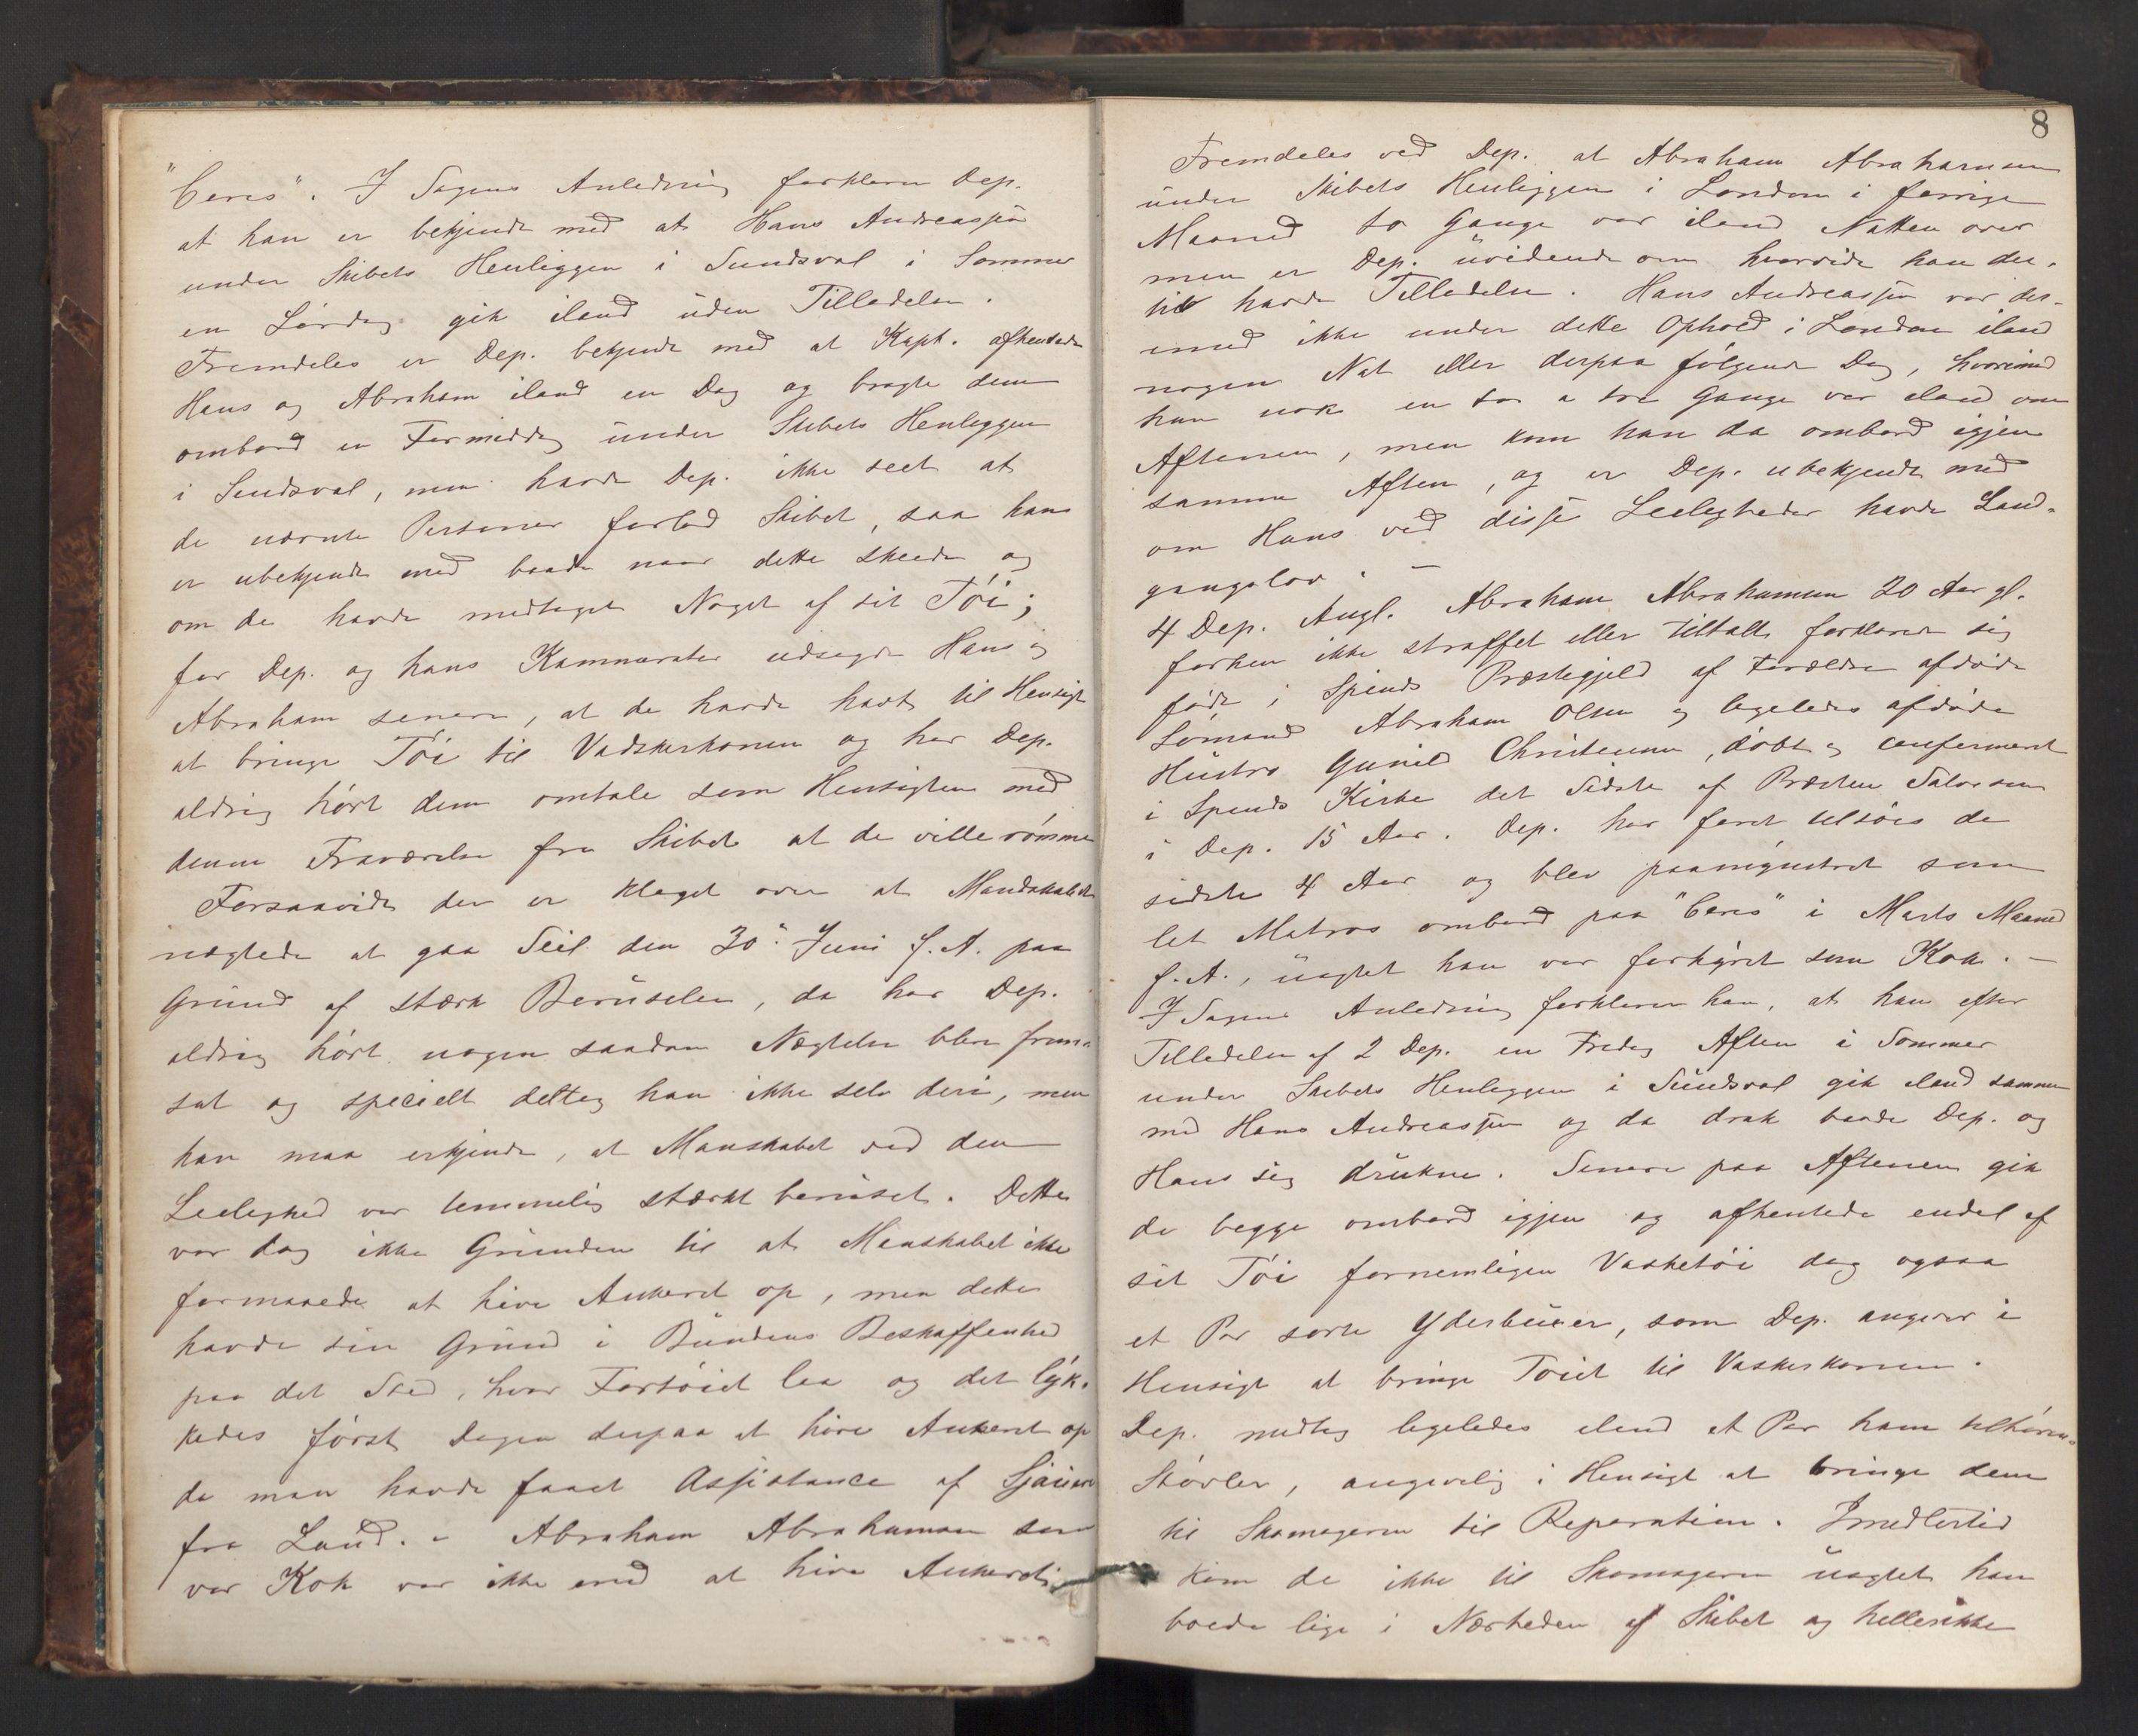 "Ceres". I Sagens Anledning forklarer Dep.
at han er bekjendt med at Hans Andreassen
under Skibets Henliggen i Sundsval i Sommer
en Lørdag gik iland uden Tilladelse.
Fremdeles er Dep. bekjendt med at Kapt. afhentede
Hans og Abraham iland en Dag og bragte dem
ombord en Formiddag under Skibets Henliggen
i Sundsval, men havde Dep. ikke seet at
de nævnte Personer forlod Skibet, saa han
er ubekjendt med baade naar dette skeede og
om de havde medtaget Noget af sit Tøi;
for Dep. og hans Kammerater udsagde Hans og
Abraham senere, at de havde havt til Hensigt
at bringe Tøi til Vadskerkonen og har Dep.
aldrig hørt dem omtale som Hensigten med
denne Fraværelse fra Skibet at de ville rømme
Forsaavidt der er klaget over at Mandskabet
nægtede at gaa Seil den 30te Juni f. A. paa
Grund af stærk Beruselse, da har Dep.
aldrig hørt nogen saadan Nægtelse blive frem-
sat og specielt deltog han ikke selv deri, men
han maa erkjende, at Manskabet ved den
Leilighed var temmelig stærkt beruset. Dette
var dog ikke Grunden til at Manskabet ikke
formaaede at hive Ankeret op, men dette
havde sin Grund i Bundens Beskaffenhed
paa det Sted, hvor Fartøiet laa og det lyk-
kedes først Dagen derpaa at hive Ankeret op
da man havde faaet Assistance af Sjauere
fra Land. - Abraham Abrahamsen som
var Kok var ikke med at hive Ankeret
8
Fremdeles ved Dep. at Abraham Abrahamsen
under Skibets Henliggen i London i forrige
Maaned to Gange var iland Natten over
men er Dep. uvidende om hvorvidt han der-
til havde Tilladelse. Hans Andreassen var der-
imod ikke under dette Ophold i London iland
nogen Nat eller derpaa følgende Dag, hvorimod
han nok en to a tre Gange var iland om
Aftenen, men kom han da ombord igjen
samme Aften, og er Dep. ubekjendt med
om Hans ved disse Leiligheder havde Land-
gangslov. -
4 Dep. Angl. Abraham Abrahamsen 20 Aar gl.
forhen ikke straffet eller tiltalt forklarer sig
født i Spinds Præstegjeld af Forældre afdøde
Sømand Abraham Olsen og ligeledes afdøde
Hustru Gunild Christensen, døbt og confirmeret
i Spinds Kirke det Sidste af Præsten Salvesen
i Dep. 15 Aar. Dep. har faret tilsøes de
sidste 4 Aar og blev paamynstret som
let Matros ombord paa "Ceres" i Marts Maaned
f. A., uagtet han var forhyret som Kok. -
I Sagens Anledning forklarer han, at han efter
Tilladelse af 2 Dep. en Fredag Aften i Sommer
under Skibets Henliggen i Sundsval gik iland sammen
med Hans Andreassen og da drak baade Dep. og
Hans sig drukne. Senere paa Aftenen gik
de begge ombord igjen og afhentede endel af
sit Tøi fornemligen Vasketøi dog ogsaa
et Par sorte Yderbuxer, som Dep. angiver i
Hensigt at bringe Tøiet til Vaskerkonen.
Dep. medtog ligeledes iland et Par ham tilhørende
Støvler, angivelig i Hensigt at bringe dem
til Skomageren til Reparation. Imidlertid
kom de ikke til Skomageren uagtet han
boede lige i Nærheden af Skibet og hellerikke